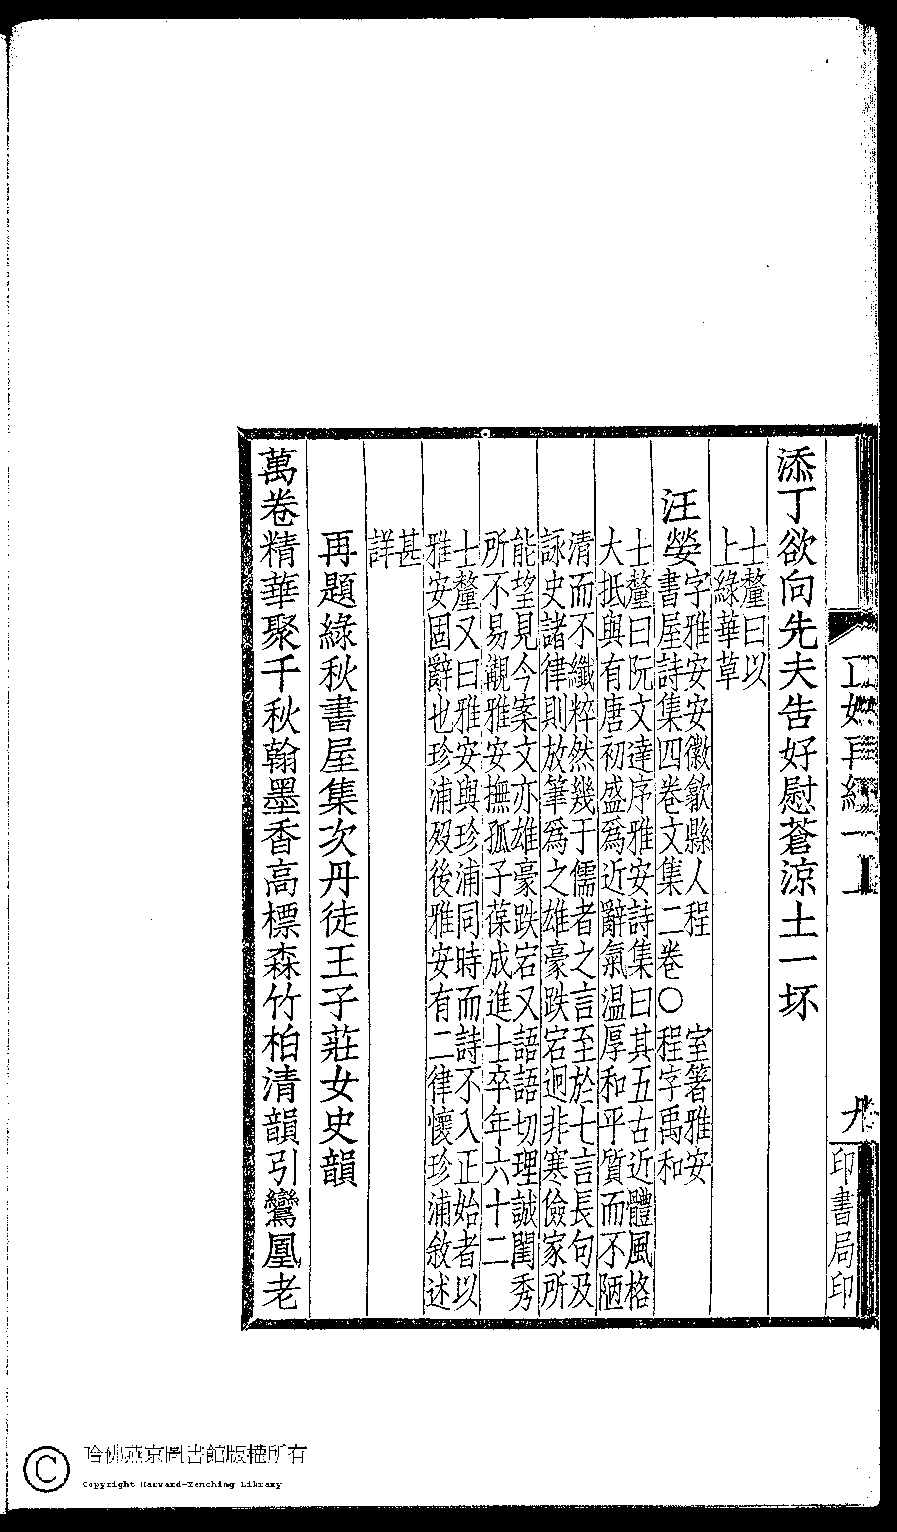 正始再續一上
九
印書局印
添丁欲向先夫告好慰蒼涼土一坏
士釐曰以
上綠華草
汪嫈
字雅安安徽歙縣人程　室箸雅安
書屋詩集四卷文集二卷〇程字禹和
士釐曰阮文達序雅安詩集曰其五古近體風格
大抵與有唐初盛爲近辭氣温厚和平質而不陋
清而不纖粹然幾于儒者之言至於七言長句及
詠史諸律則放筆爲之雄豪跌宕迥非寒儉家所
能望見今案文亦雄豪跌宕又語語切理誠閨秀
所不易覯雅安撫孤子葆成進士卒年六十二
士釐又曰雅安與珍浦同時而詩不入正始者以
雅安固辭也珍浦歿後雅安有二律懷珍浦敘述
甚
詳
再題綠秋書屋集次丹徒王子莊女史韻
萬卷精華聚千秋翰墨香高標森竹柏清韻引鸞凰老
哈佛燕京圖書館版權所有
Copyright Harvard-Yenching Library